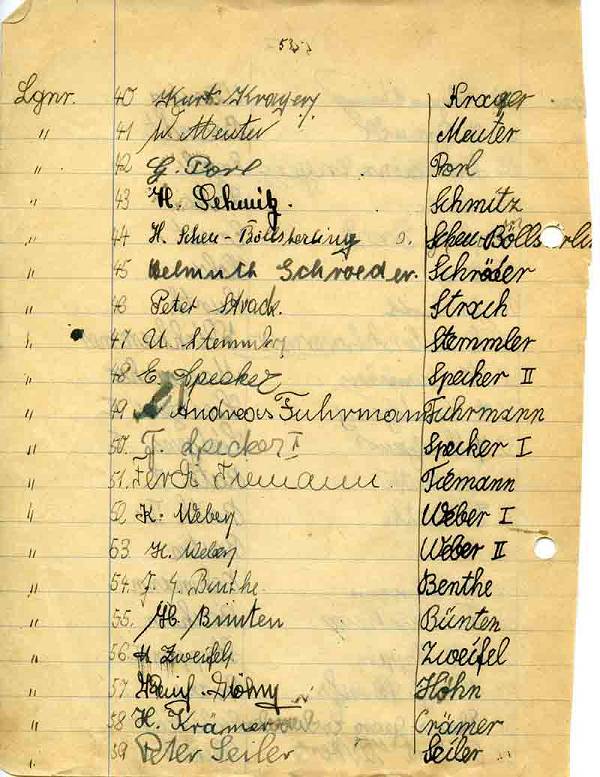 53
Lgnr. 40 Kurt Krager Krager
" 41 W. Meuter Meuter
" 42 G. Porl Porl
" 43 H. Schmitz. Schmitz
" 44 H. Scheu-Böllsterling Scheu-Böllsterlin
" 45 Helmuth Schroeder. Schröder
" 46 Peter Strack. Strach
" 47 U. Stemmler Stemmler
" 48 E. Specker Specker II
" 49 Andreas Fuhrmann Fuhrmann
" 50. J. Specker I Specker I
" 51. Ferd. Tiemann. Tiemann
" 52 K. Weber Weber I
" 53 H. Weber Weber II
" 54. J. Benthe Benthe
" 55. H. Bünten Bünten
" 56 H Zweifel Zweifel
" 57. Höhn
" 58 H. Krämer Crämer
" 59 Peter Seiler Seiler